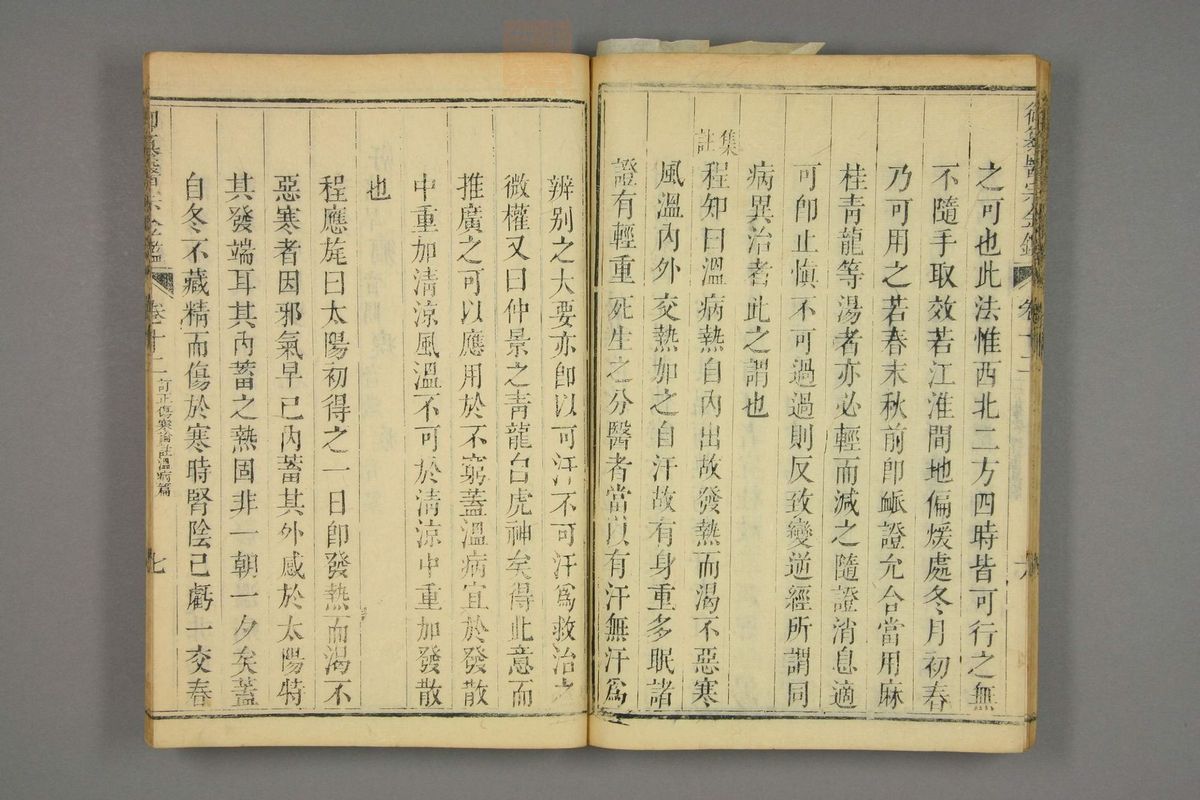 御纂醫宗金鑑 卷十二 六
之可也此法惟西北二方四時皆可行之無
不隨手取效若江淮間地偏煖處冬月初春
乃可用之若春末秋前卽衇證允合當用麻
桂青龍等湯者亦必輕而減之隨證消息適
可卽止愼不可過過則反致變逆經所謂同
病異治者此之謂也
集註
程知曰溫病熱自內出故發熱而渴不惡寒
風溫內外交熱加之自汗故有身重多眠諸
證有輕重死生之分醫者當以有汗無汗爲
辨別之大要亦卽以可汗不可汗爲救治之
微權又曰仲景之青龍白虎神矣得此意而
推廣之可以應用於不窮蓋溫病宜於發散
中重加清涼風溫不可於清涼中重加發散
也
程應旄曰太陽初得之一日卽發熱而渴不
惡寒者因邪氣早已內蓄其外感於太陽特
其發端耳其內蓄之熱固非一朝一夕矣蓋
自冬不藏精而傷於寒時腎陰已虧一交春
御纂醫宗金鑑 卷十二 訂正傷寒論註溫病篇 七